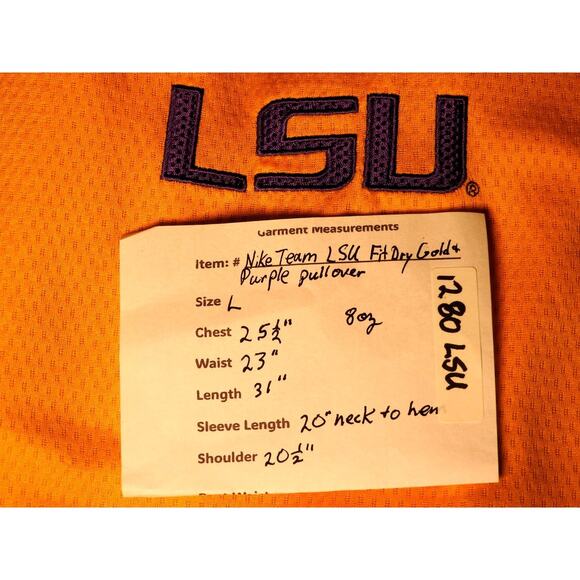 LSU®
Garment Measurements
Item: # Nike Team LSU Fit Dry Gold +
Purple pullover
Size L
8oz
Chest 25 1/2"
Waist 23"
Length 31"
Sleeve Length 20" neck to hem
Shoulder 20 1/2"
1280 LSU